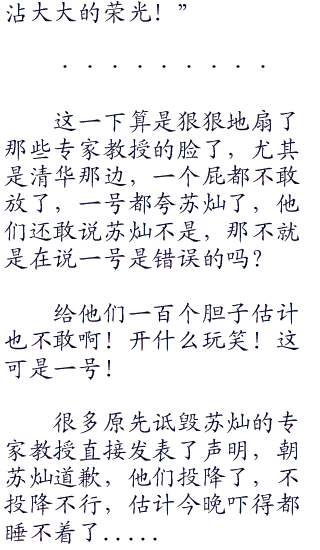 沾大大的荣光！”
．．．．．．．．．
这一下算是狠狠地扇了
那些专家教授的脸了，尤其
是清华那边，一个屁都不敢
放了，一号都夸苏灿了，他
们还敢说苏灿不是，那不就
是在说一号是错误的吗？
给他们一百个胆子估计
也不敢啊！开什么玩笑！这
可是一号！
很多原先诋毁苏灿的专
家教授直接发表了声明，朝
苏灿道歉，他们投降了，不
投降不行，估计今晚吓得都
睡不着了.....